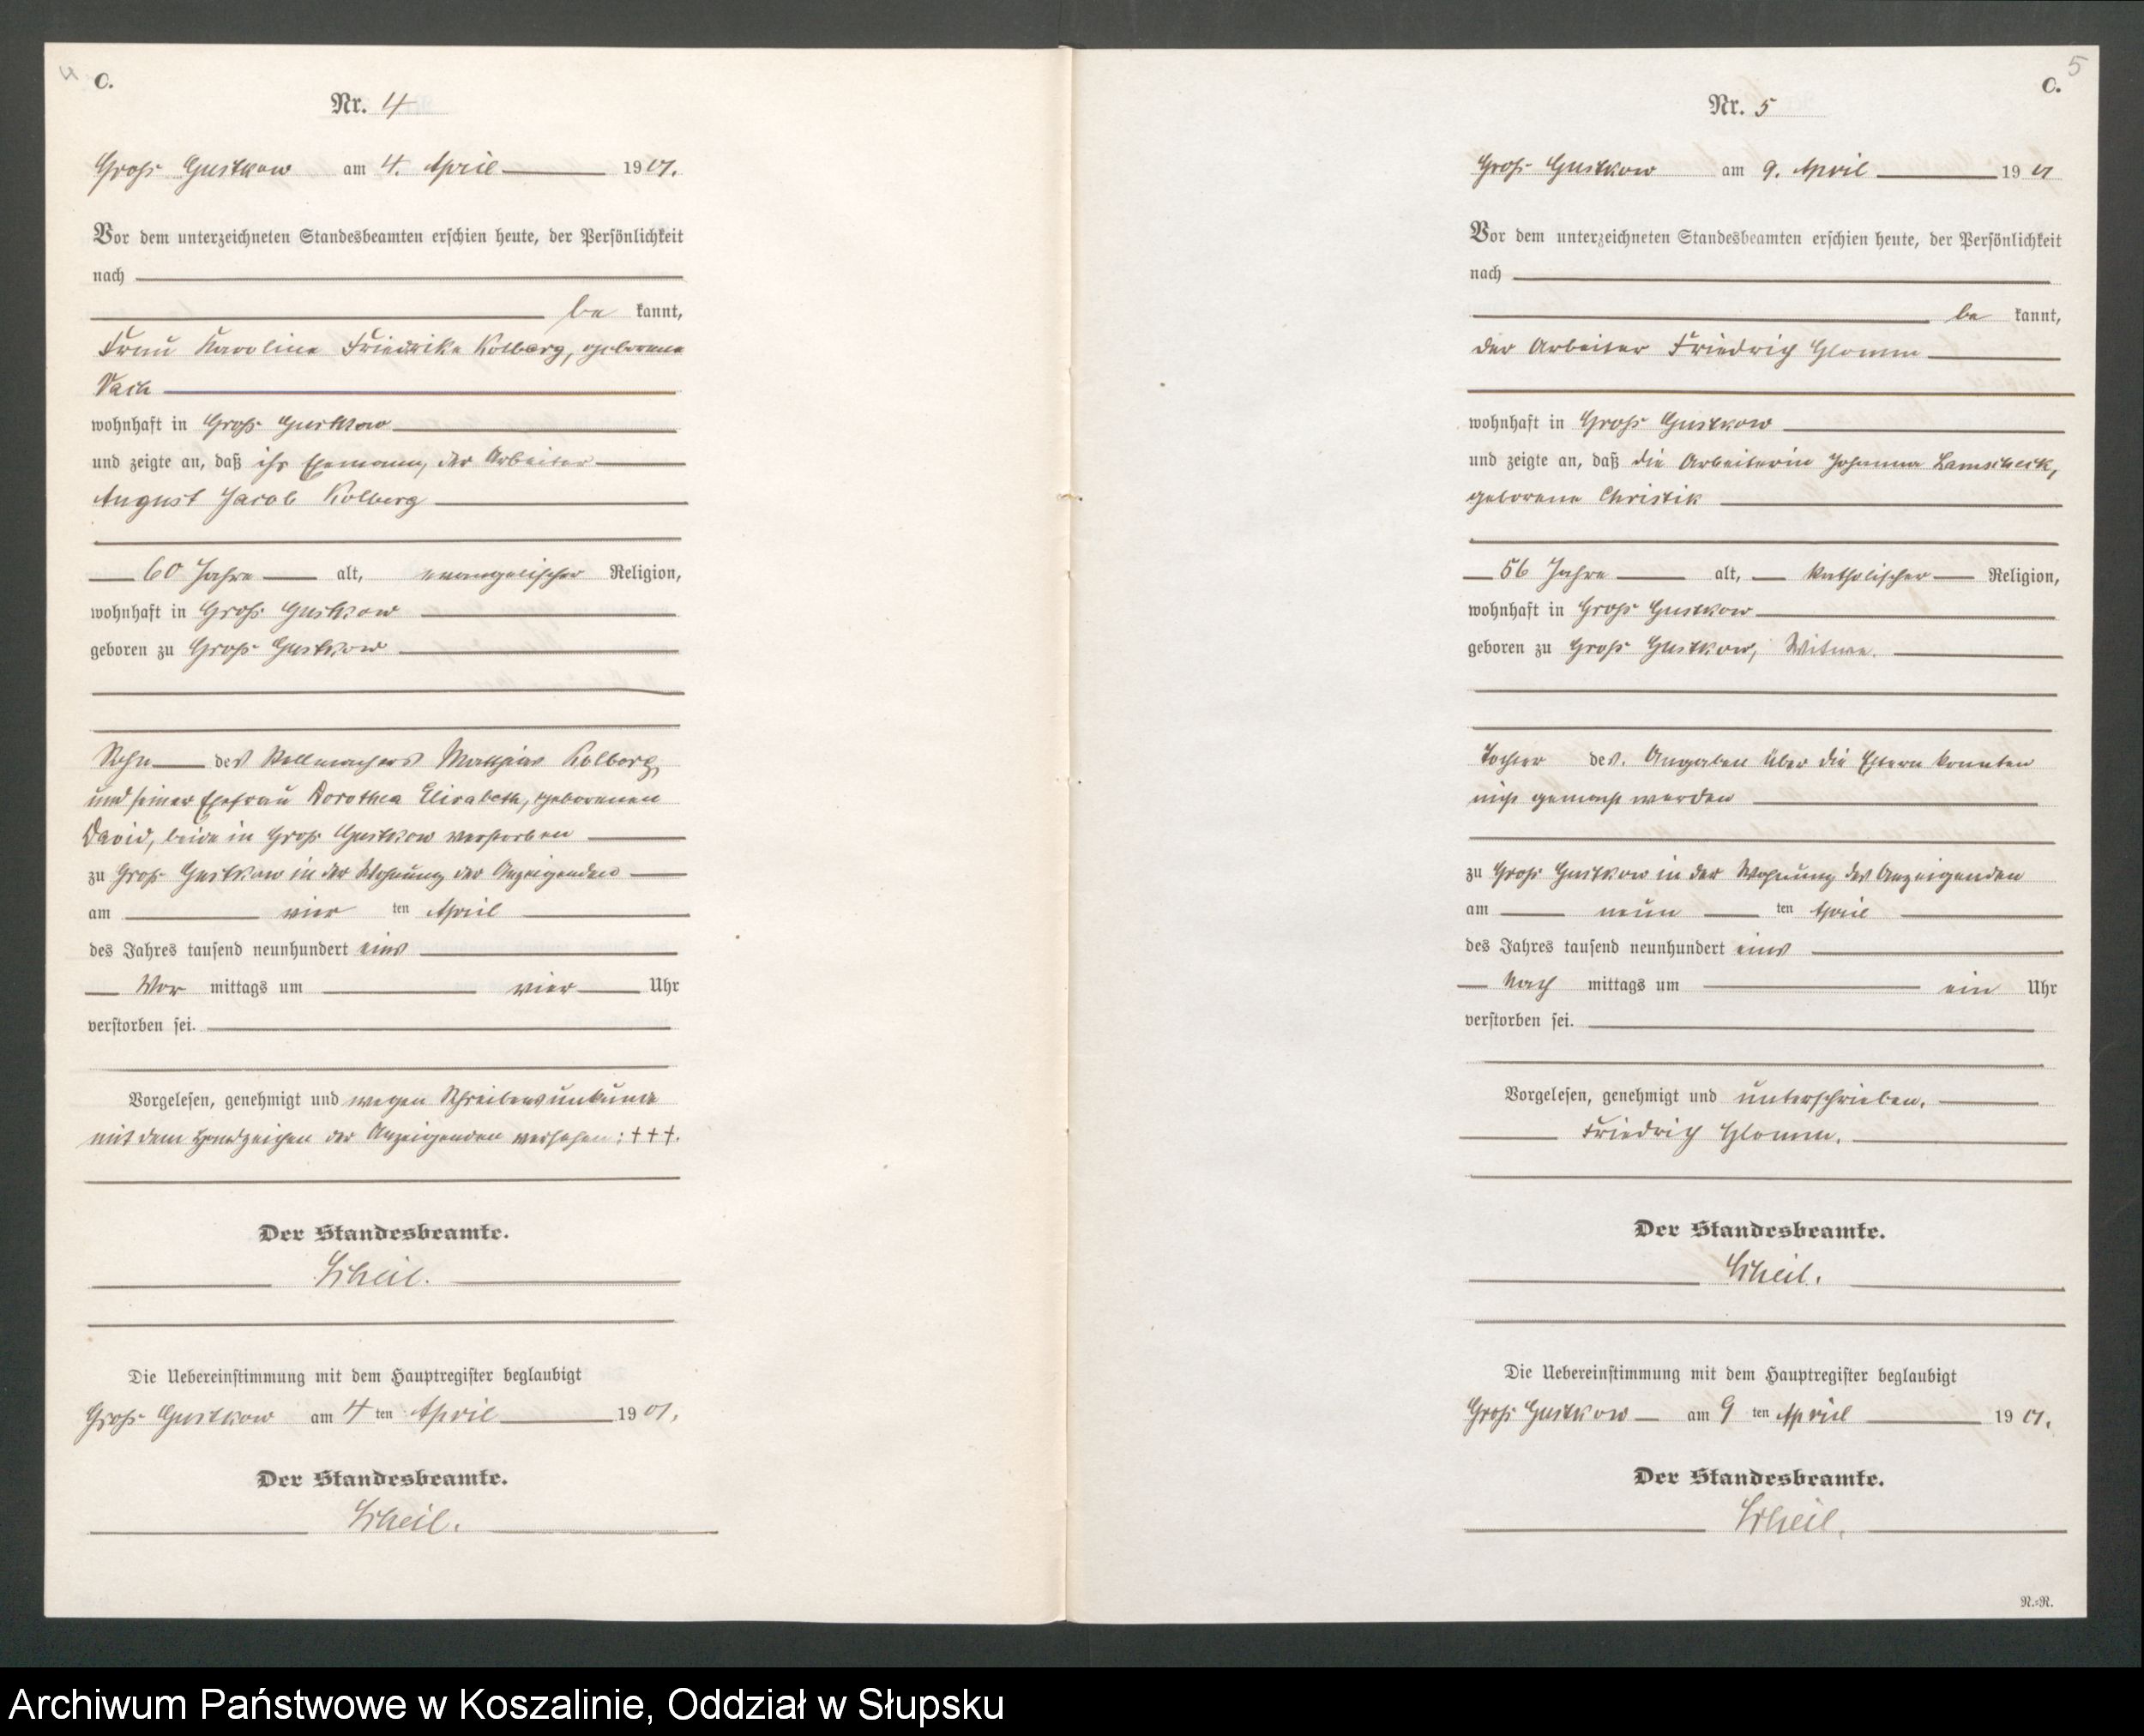 4
C.
Nr. 4
Groß Gustkow am 4. April 1901.
Vor dem unterzeichneten Standesbeamten erschien heute, der Persönlichkeit
nach
be kannt,
Frau Karoline Friedrike Kolberg, geborene
wohnhaft in Groß Gustkow
und zeigte an, daß ihr Ehemann, der Arbeiter
August Jacob Kolberg
60 Jahre alt, evangelischer Religion,
wohnhaft in Groß Gustkow
geboren zu Groß Gustkow
Sohn des Stellmachers Mathias Kolberg
und seiner Ehefrau Dorothea Elisabeth, geborenen
David, beide in Groß Gustkow verstorben
zu Groß Gustkow in der Wohnung der Anzeigenden
am vier ten April
des Jahres tausend neunhundert eins
Vor mittags um vier Uhr
verstorben sei.
Vorgelesen, genehmigt und wegen Schreibensunkunde
mit dem Handzeichen der Anzeigenden versehen: +++.
Der Standesbeamte.
Scheil.
Die Uebereinstimmung mit dem Hauptregister beglaubigt
Groß Gustkow am 4 ten April 1901.
Der Standesbeamte.
Scheil.
5
C.
Nr. 5
Groß Gustkow am 9. April 1901
Vor dem unterzeichneten Standesbeamten erschien heute, der Persönlichkeit
nach
be kannt,
der Arbeiter Friedrich Glomm
wohnhaft in Groß Gustkow
und zeigte an, daß die Arbeiterin Johanna Lamscheck,
geborene Christik
56 Jahre alt, katholischer Religion,
wohnhaft in Groß Gustkow
geboren zu Groß Gustkow, Witwe.
Tochter des. Angaben über die Eltern konnten
nicht gemacht werden
zu Groß Gustkow in der Wohnung des Anzeigenden
am neun ten April
des Jahres tausend neunhundert eins
Nach mittags um ein Uhr
verstorben sei.
Vorgelesen, genehmigt und unterschrieben.
Friedrich Glomm.
Der Standesbeamte.
Scheil.
Die Uebereinstimmung mit dem Hauptregister beglaubigt
Groß Gustkow am 9 ten April 1901.
Der Standesbeamte.
Scheil.
N.=R.
Archiwum Państwowe w Koszalinie, Oddział w Słupsku